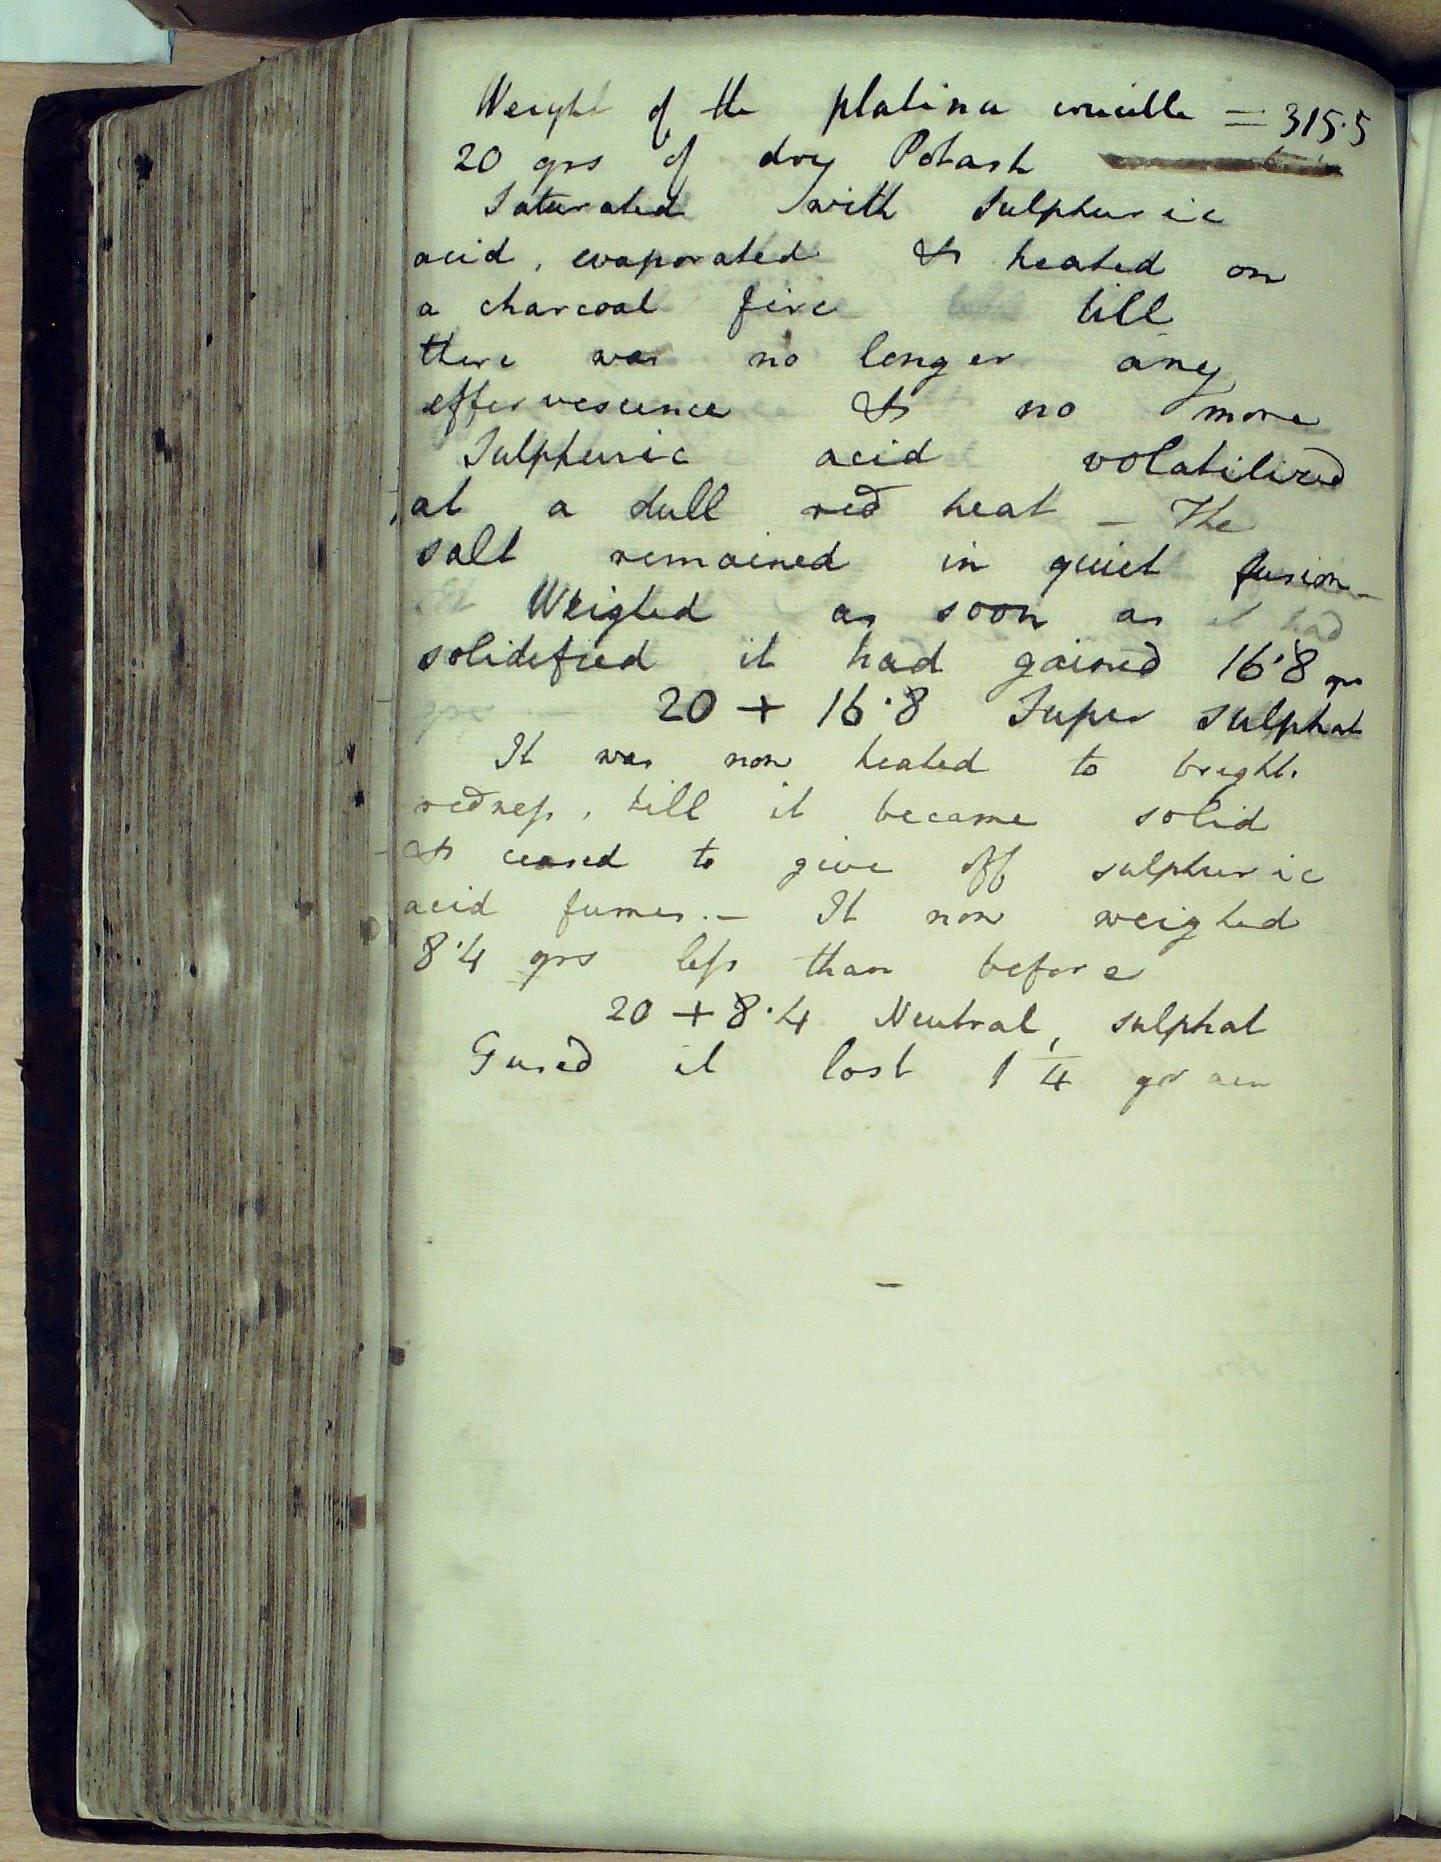 Weight of the platina crucible = 315.5
20 grs of dry Potash
Saturated with Sulphuric
acid, evaporated & heated on
a charcoal fire till
there was no longer any
effervescence & no more
Sulphuric acid volatilized
at a dull red heat – The
salt remained in quiet fusion –
Weighed as soon as it had
solidefied it had gained 16.8 grs
20 + 16.8 Super sulphat
It was now heated to bright
redness, till it became solid
& ceased to give off sulphuric
acid fumes. – It now weighed
8.4 grs less than before
20 + 8.4 Neutral sulphat
it lost 1 1/4 grain